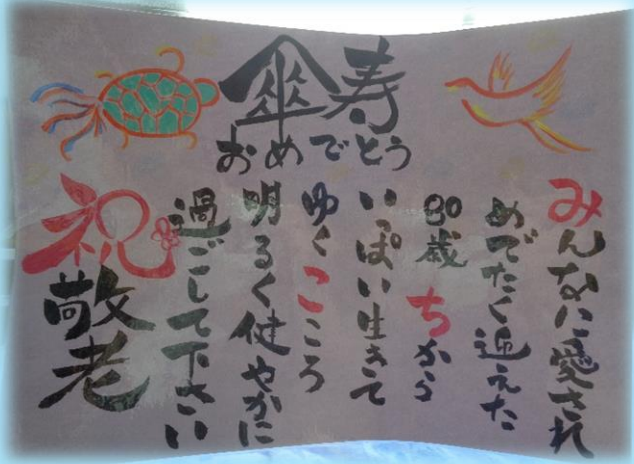 傘寿
おめでとう
みんなに愛され
めでたく迎えた
80歳 ちから
いっぱい生きて
ゆくこころ
明るく健やかに
過ごして下さい
祝
敬老